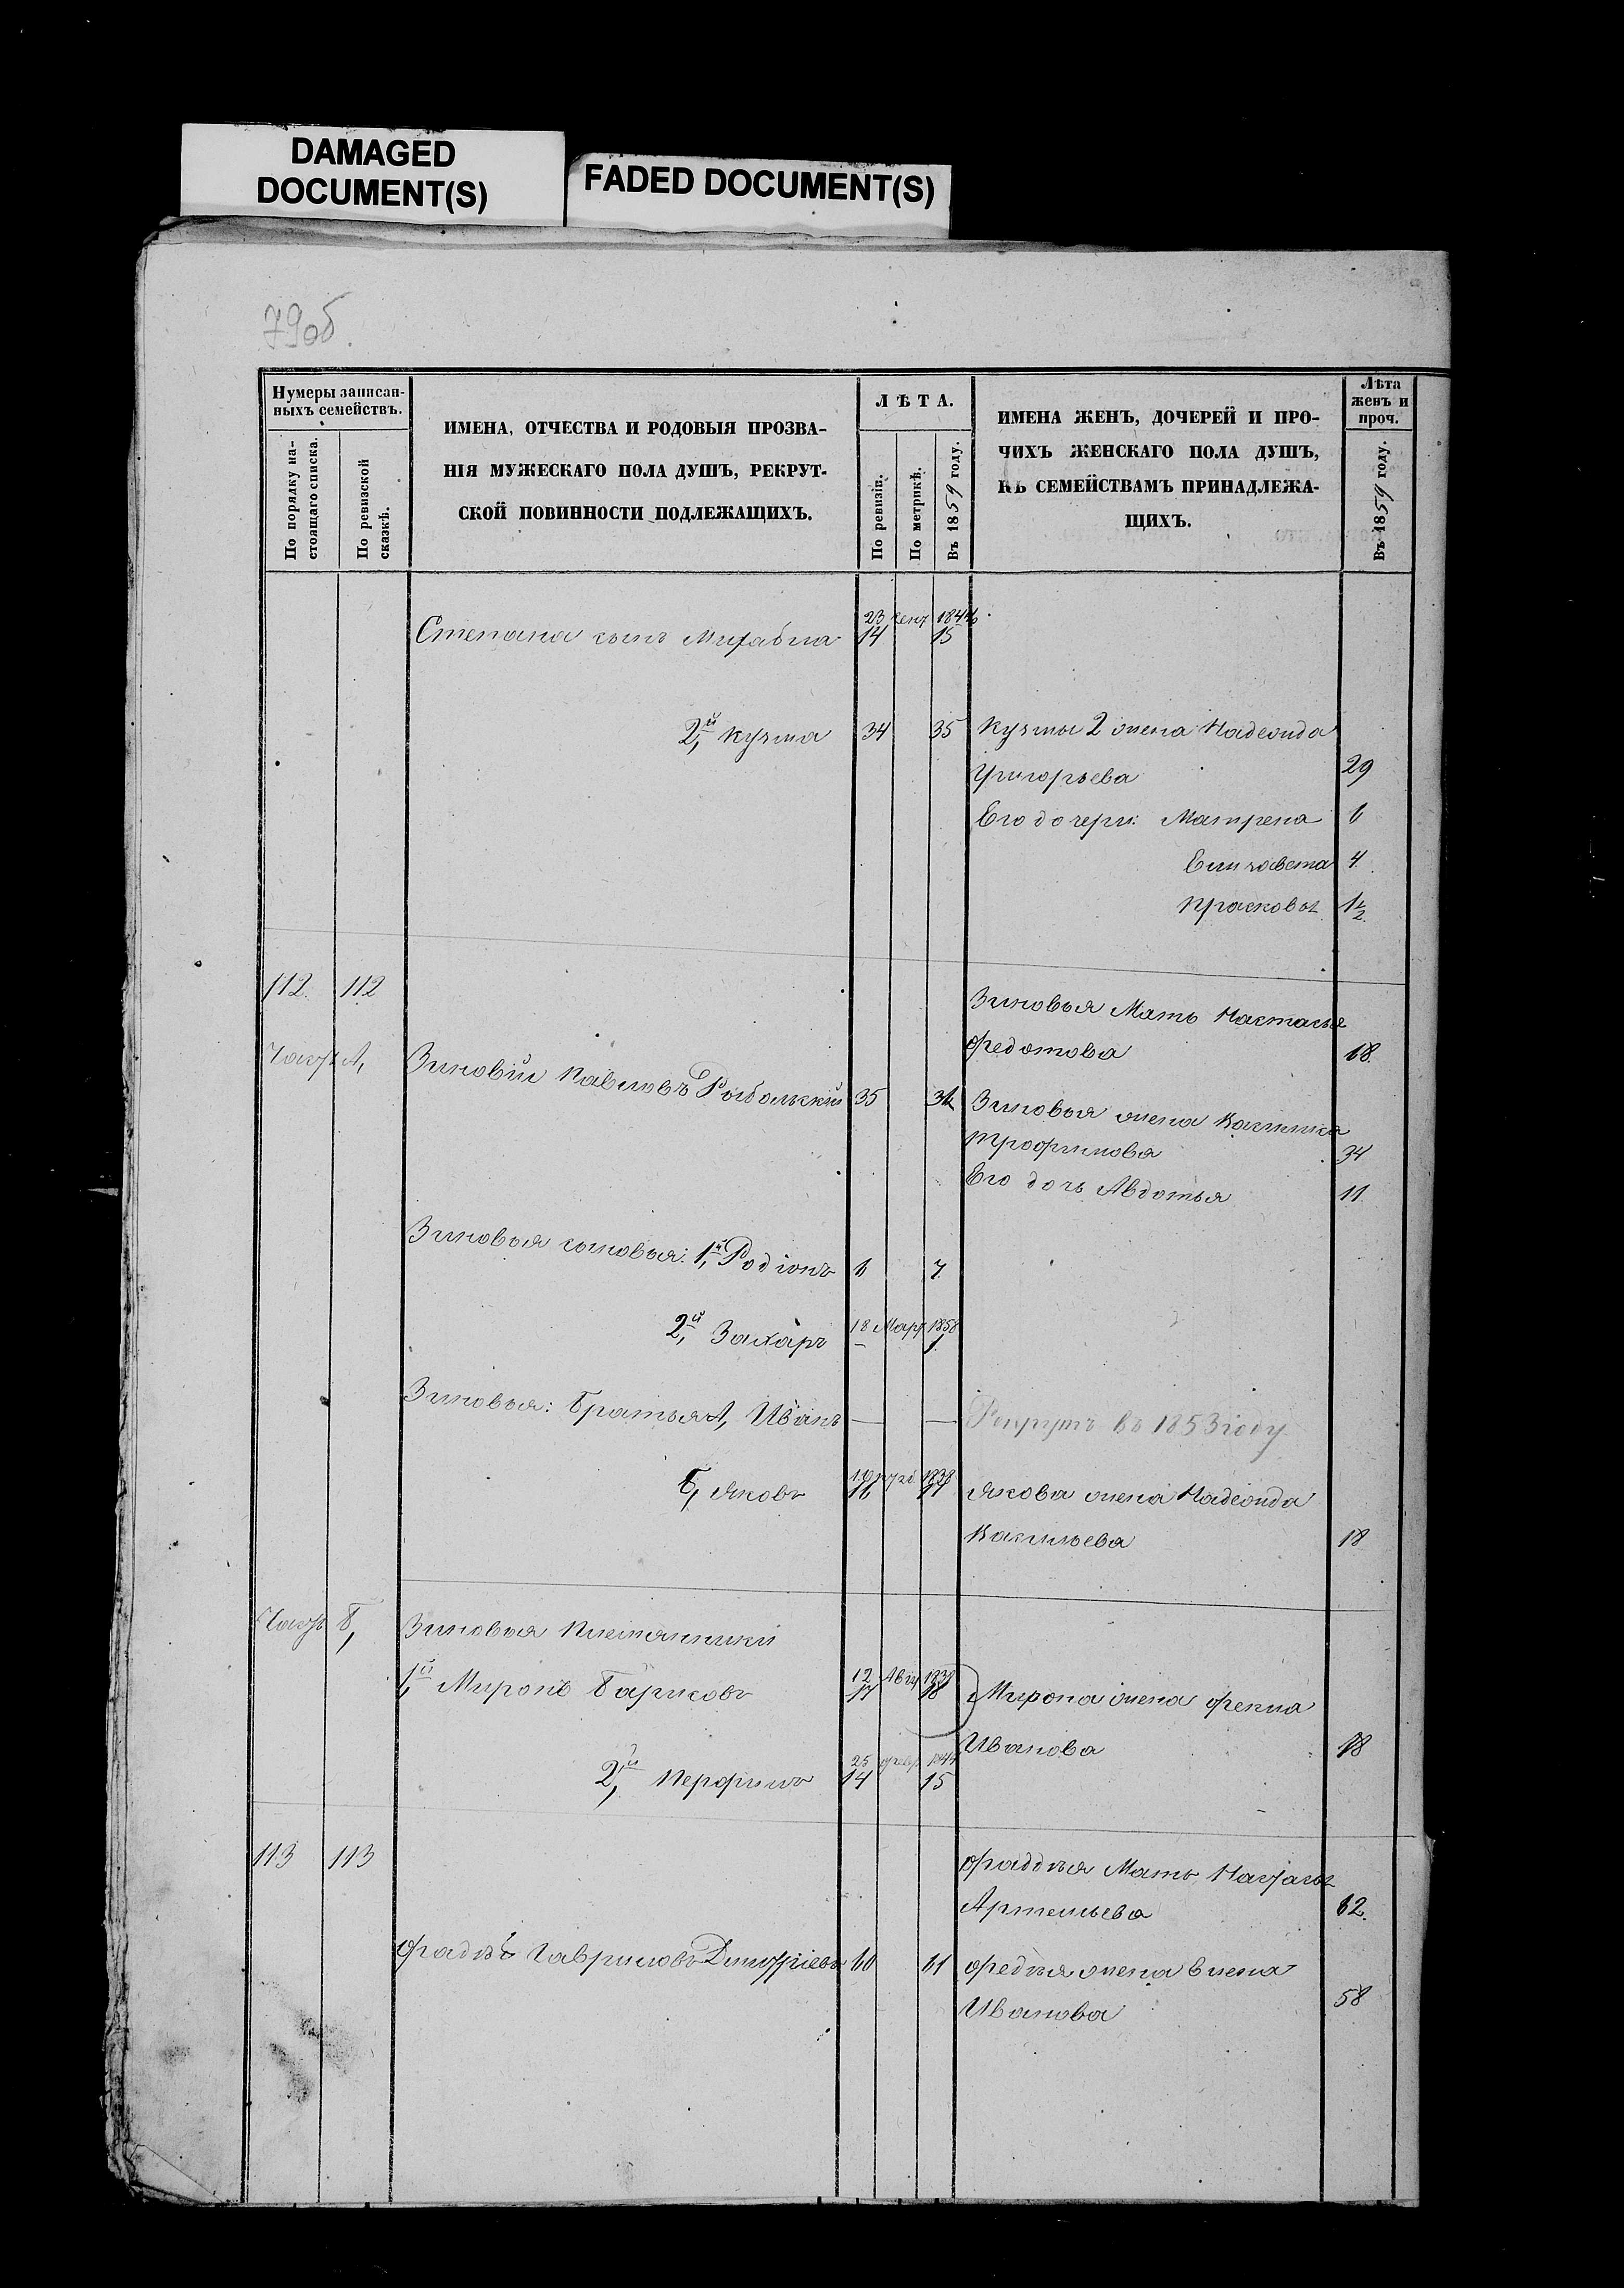 DAMAGED
DOCUMENT(S)
FADED DOCUMENT(S)
79об.
Нумеры записан-
ныхъ семействъ.
По порядку на-
стоящаго списка.
По ревизской
сказкѣ.
ИМЕНА, ОТЧЕСТВА И РОДОВЫЯ ПРОЗВА-
НІЯ МУЖЕСКАГО ПОЛА ДУШЪ, РЕКРУТ-
СКОЙ ПОВИННОСТИ ПОДЛЕЖАЩИХЪ.
ЛѢТА.
По ревизіи.
По метрикѣ.
Въ 1859 году.
ИМЕНА ЖЕНЪ, ДОЧЕРЕЙ И ПРО-
ЧИХЪ ЖЕНСКАГО ПОЛА ДУШЪ,
КЪ СЕМЕЙСТВАМЪ ПРИНАДЛЕЖА-
ЩИХЪ.
Лѣта
женъ и
проч.
Въ 1859 году.
23 сент
Степана сынъ Михайла 14 15
2й, Кузма 34 35 Кузмы 2 жена Надеонда
Григорьева 29
Его дочери: Матрена 6
Елизавета 4
Прасковья 1½
112. 112
Зиновья Мать Настасья
Федотова 68.
А, Зиновий Павловъ 35
Зиновья жена
Трофимова 34
Его дочь Авдотья 11
Зиновья сыновья: 1й, Родіонъ 6 7
2й, Захаръ 18 Март 1858
— 1
Зиновья: братья А, Иванъ — — Рекрутъ въ 1853 году
Б, Яковъ 16 17 Якова жена Надеонда
Васильева 18
Б, Зиновья племянники
1й, Миронъ Борисовъ 12 Авгу 1838
17 18 Мирона жена Фекла
Иванова 18
2й, Перфилъ 25 февр
14 15
113 113
Фаддѣя Мать Настасья
Артемьева 82.
Фадѣй Гавриловъ Дмитріевъ 60 61 Федѣя жена Елена
Иванова 58